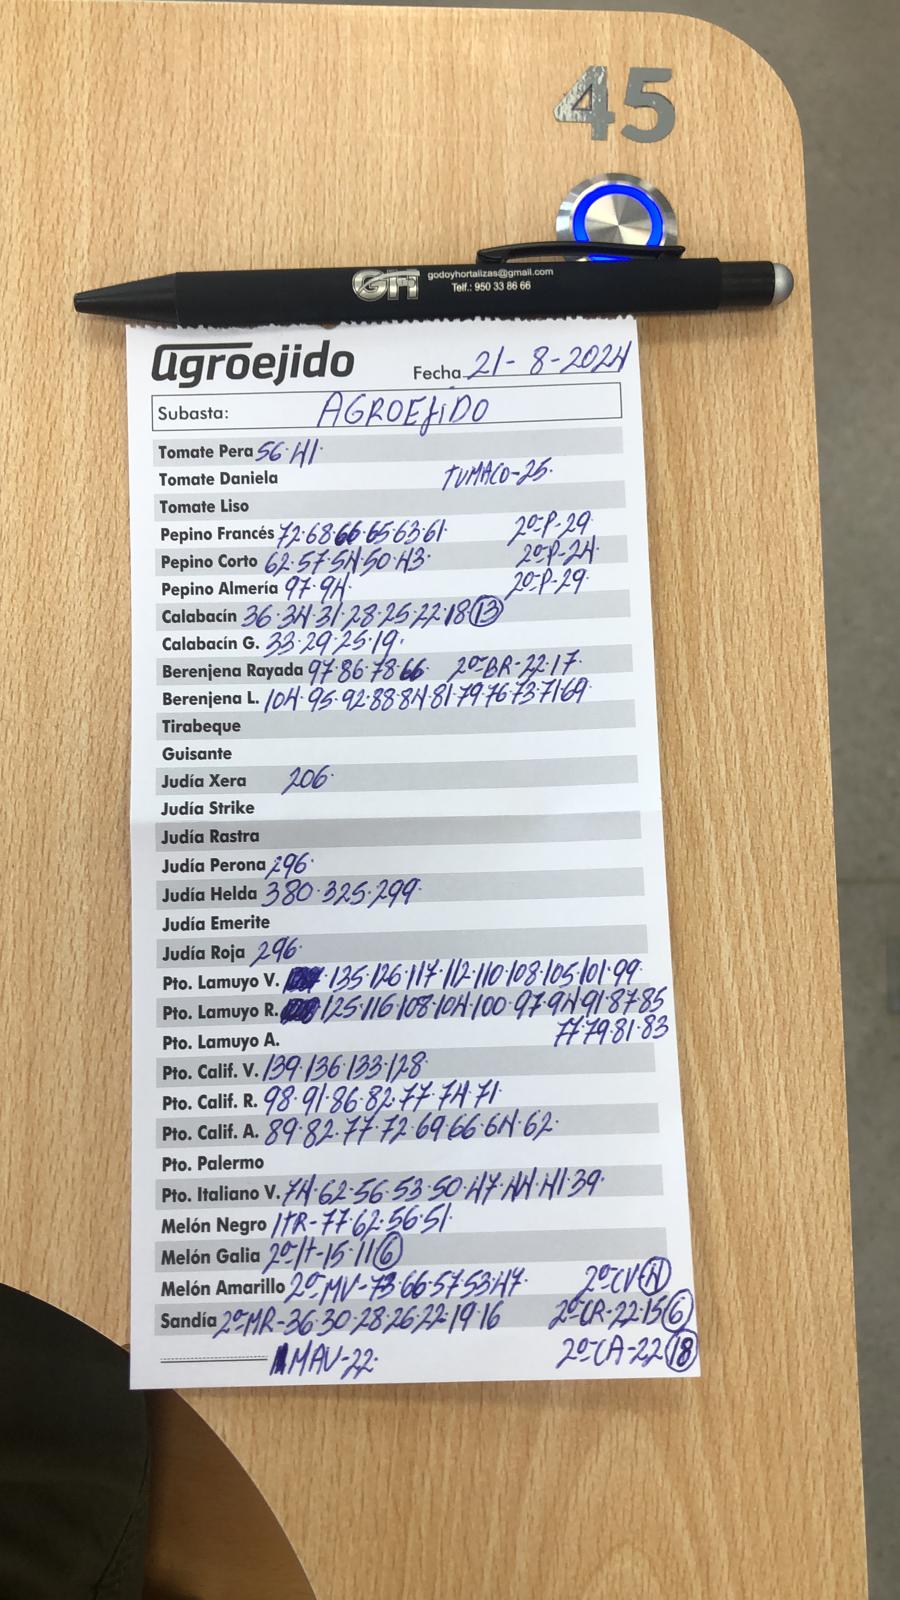 45
GH godoyhortalizas@gmail.com
Telf.: 950 33 86 66
agroejido
Fecha 21-8-2024
Subasta: AGROEJIDO
Tomate Pera 56·41·
Tomate Daniela TUMACO-25·
Tomate Liso
Pepino Francés 72·68·66·65·63·61· 2º-P-29·
Pepino Corto 62·57·54·50·43· 2º-P-24·
Pepino Almería 97·94· 2º-P-29·
Calabacín 36·34·31·28·25·22·18 13
Calabacín G. 33·29·25·19·
Berenjena Rayada 97·86·78·66· 2º-BR-22·17·
Berenjena L. 104·95·92·88·84·81·79·76·73·71·69·
Tirabeque
Guisante
Judía Xera 206·
Judía Strike
Judía Rastra
Judía Perona 296·
Judía Helda 380·325·299·
Judía Emerite
Judía Roja 296·
Pto. Lamuyo V. 135·126·117·112·110·108·105·101·99·
Pto. Lamuyo R. 125·116·108·104·100·97·94·91·87·85
Pto. Lamuyo A. 77·79·81·83
Pto. Calif. V. 139·136·133·128·
Pto. Calif. R. 98·91·86·82·77·74·71·
Pto. Calif. A. 89·82·77·72·69·66·64·62·
Pto. Palermo
Pto. Italiano V. 74·62·56·53·50·47·44·41·39·
Melón Negro ITR-77·62·56·51·
Melón Galia 2º-IT-15·11 6
Melón Amarillo 2º-MV-73·66·57·53·47· 2º-CV
Sandía 2º-MR-36·30·28·26·22·19·16 2º-CR-22·15 6
MAV-22· 2º-CA-22 18